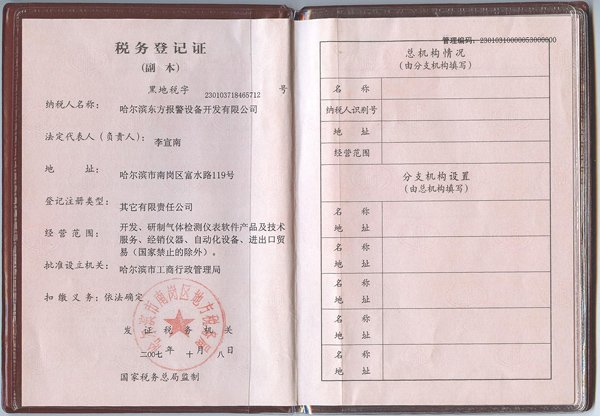 税务登记证
(副 本)
黑地税字 230103718465712 号
纳税人名称: 哈尔滨东方报警设备开发有限公司
法定代表人(负责人): 李宣南
地 址: 哈尔滨市南岗区富水路119号
登记注册类型: 其它有限责任公司
经营范围: 开发、研制气体检测仪表软件产品及技术
服务、经销仪器、自动化设备、进出口贸
易(国家禁止的除外)。
批准设立机关: 哈尔滨市工商行政管理局
扣缴义务: 依法确定
哈尔滨市南岗区地方税务局
发证税务机关
二00七年 十月 八日
国家税务总局监制
管理编码: 23010310000053000000
总机构情况
(由分支机构填写)
名 称
纳税人识别号
地 址
经营范围
分支机构设置
(由总机构填写)
名 称
地 址
名 称
地 址
名 称
地 址
名 称
地 址
名 称
地 址